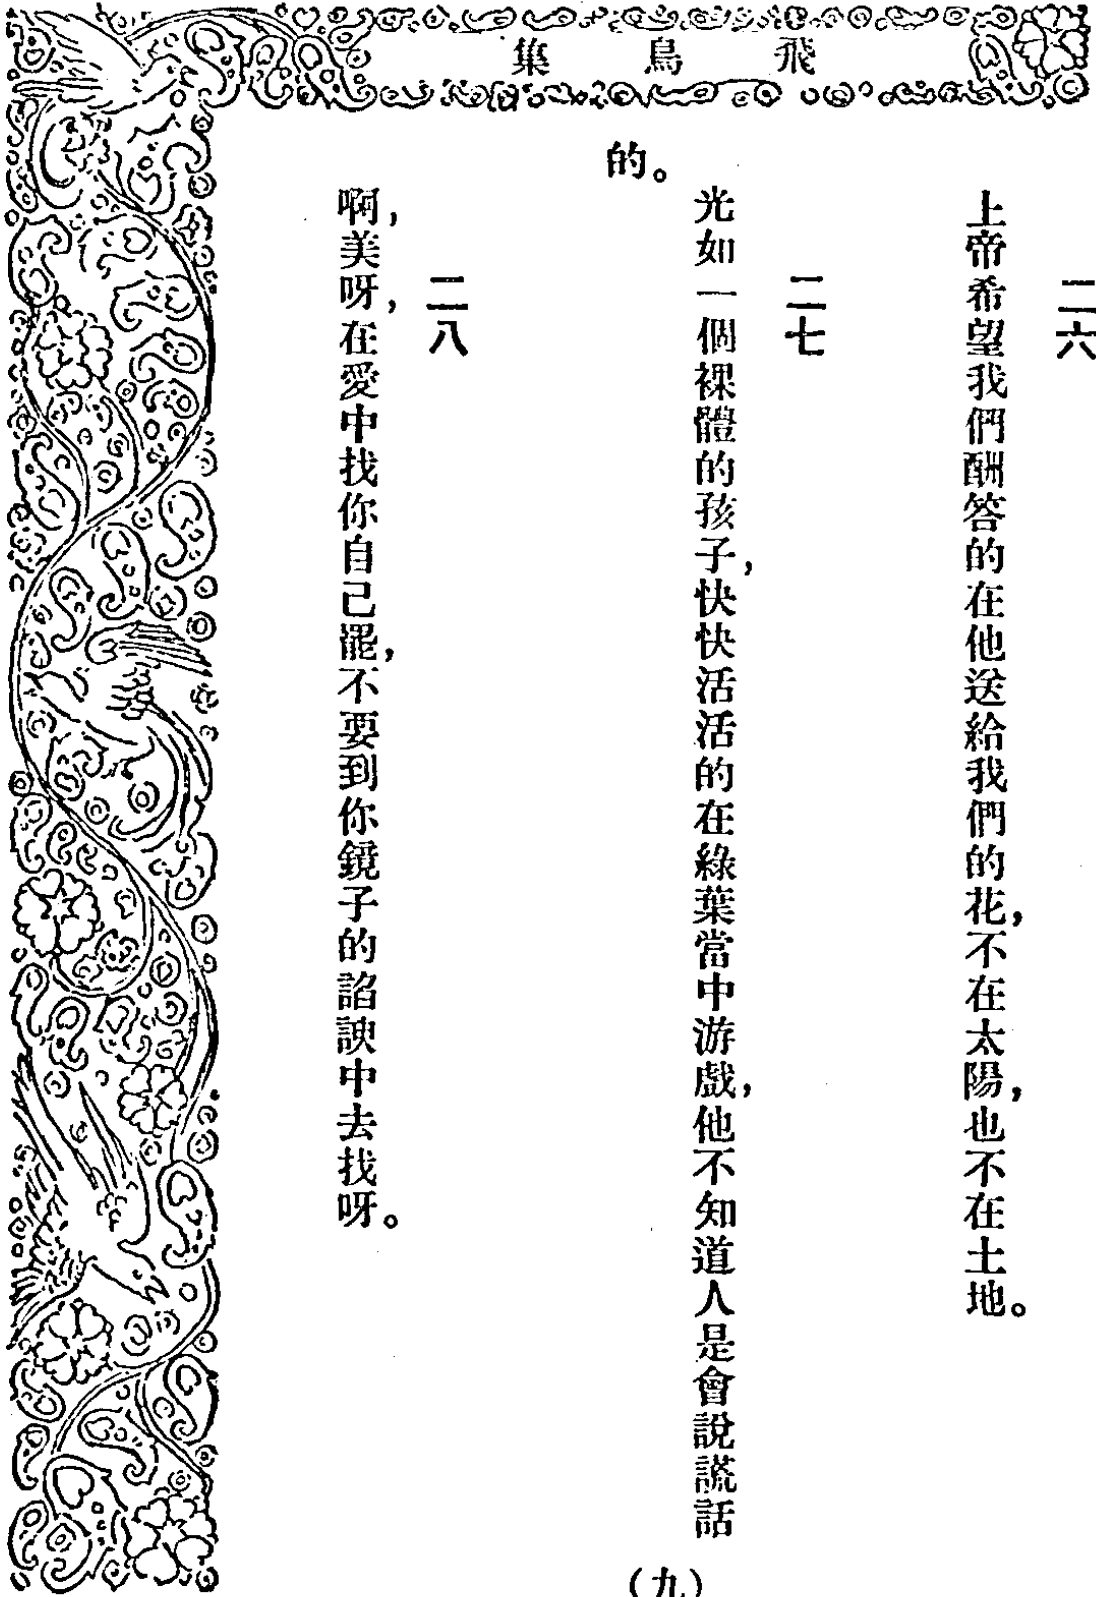 飛鳥集
二六
上帝希望我們酬答的在他送給我們的花，不在太陽，也不在土地。
二七
光如一個裸體的孩子，快快活活的在綠葉當中游戲，他不知道人是會說謊話
的。
二八
啊，美呀，在愛中找你自己罷，不要到你鏡子的諂諛中去找呀。
（九）